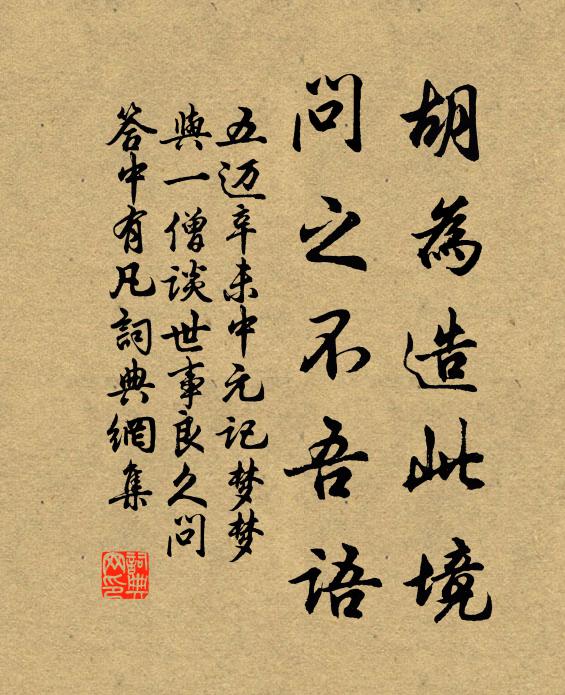 胡為造此境
問之不吾語
五迈辛未中元记梦梦
與一僧談世事良久问
答中有凡詞典網集
詞典网印